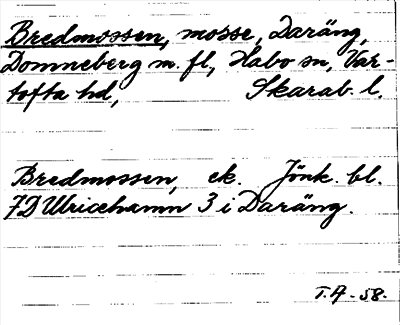 Bredmossen, mosse, Daräng,
Domneberg m. fl, Habo sn, Var-
tofta hd, Skarab. l.
Bredmossen, ek. Jönk. bl.
7D Ulricehamn 3 i Daräng.
T.A -58.